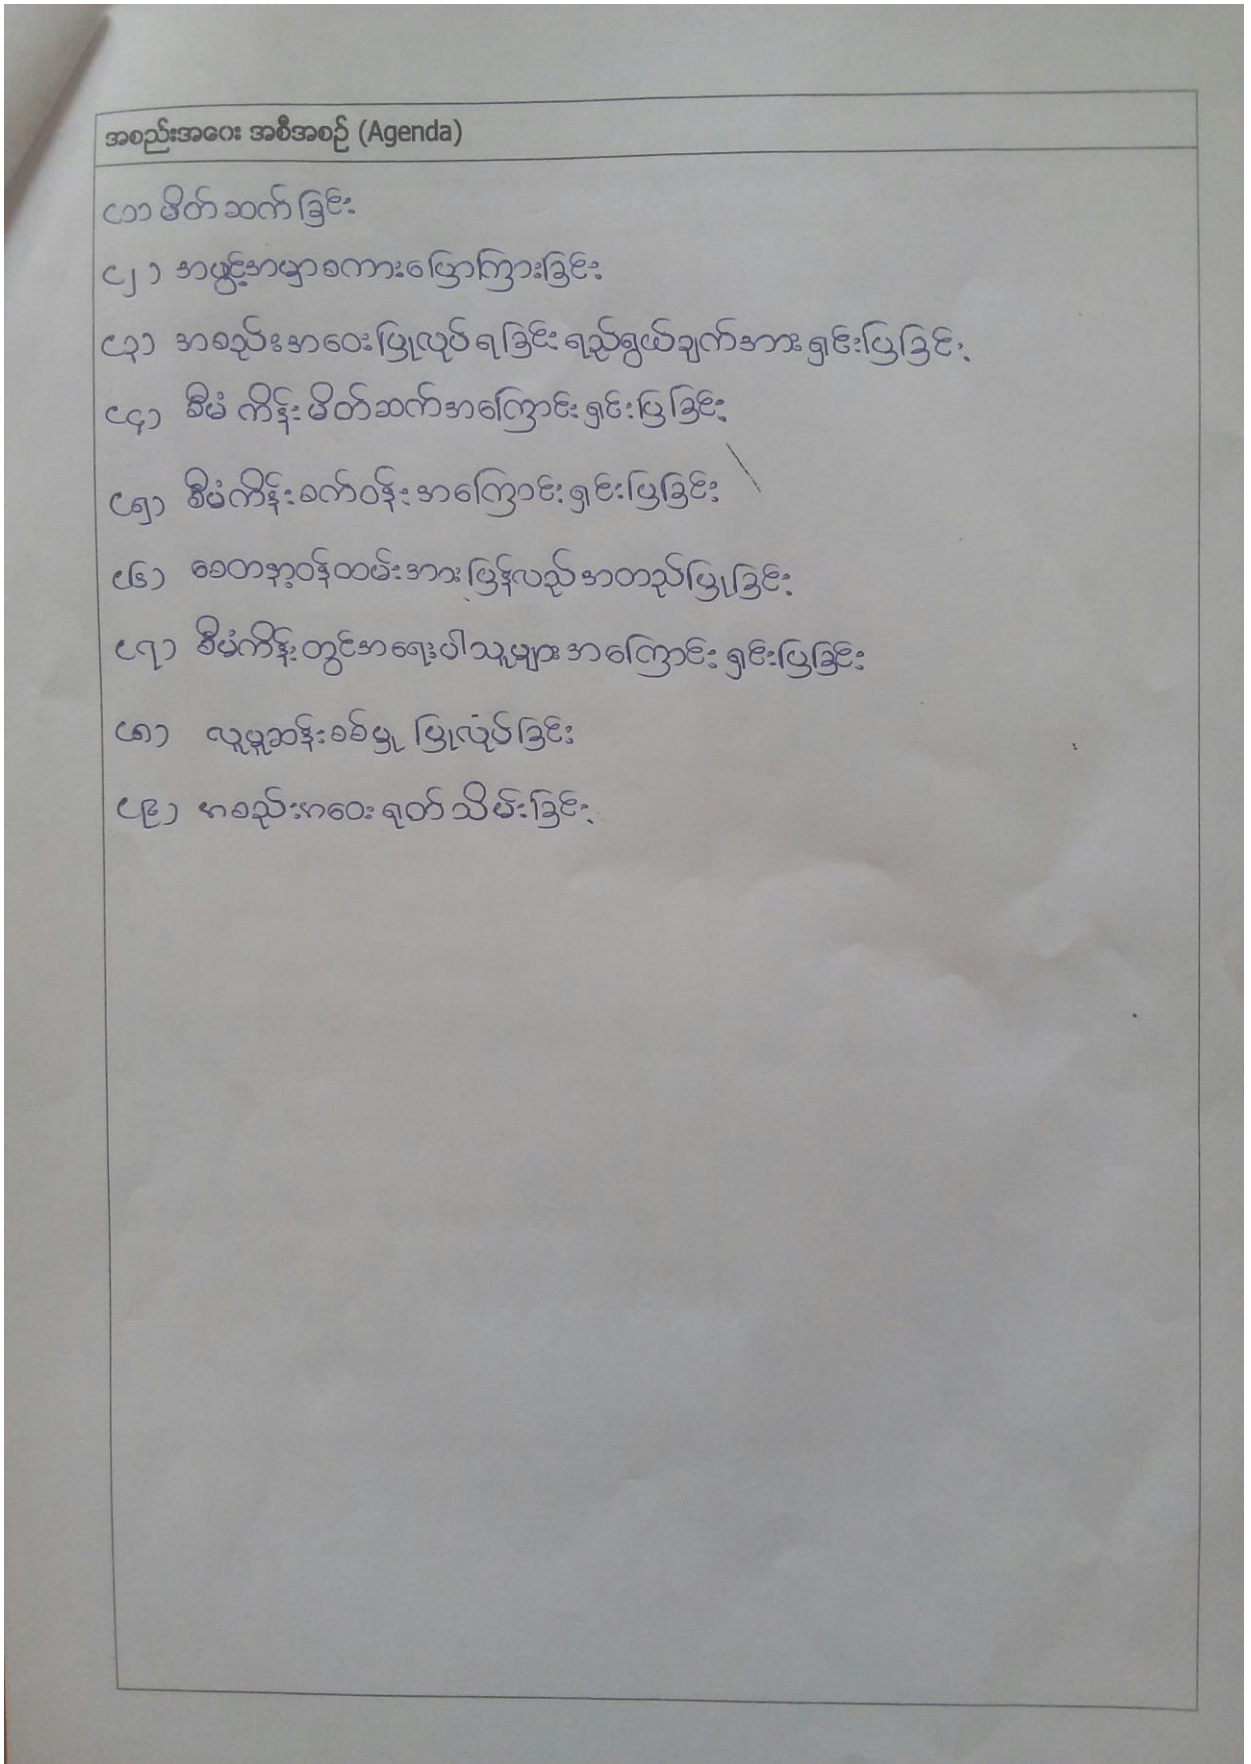 အစည်းအဝေး အစီအစဉ် (Agenda)
(၁) မိတ်ဆက်ခြင်း
(၂) အဖွင့်အမှာစကားပြောကြားခြင်း
(၃) အစည်းအဝေးပြုလုပ်ရခြင်း ရည်ရွယ်ချက်အား ရှင်းပြခြင်း
(၄) စီမံကိန်းမိတ်ဆက်အကြောင်း ရှင်းပြခြင်း
(၅) စီမံကိန်းစက်ဝန်းအကြောင်း ရှင်းပြခြင်း
(၆) စေတနာ့ဝန်ထမ်းအား ပြန်လည်အတည်ပြုခြင်း
(၇) စီမံကိန်းတွင်အရေးပါသူများအကြောင်း ရှင်းပြခြင်း
(၈) လူမှုဆန်းစစ်မှု ပြုလုပ်ခြင်း
(၉) အစည်းအဝေးရုတ်သိမ်းခြင်း